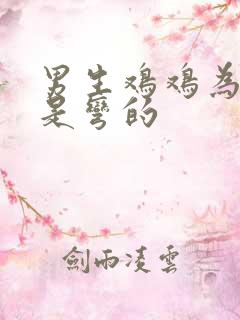 男生鸡鸡为
是彎的
劍雨凌雲